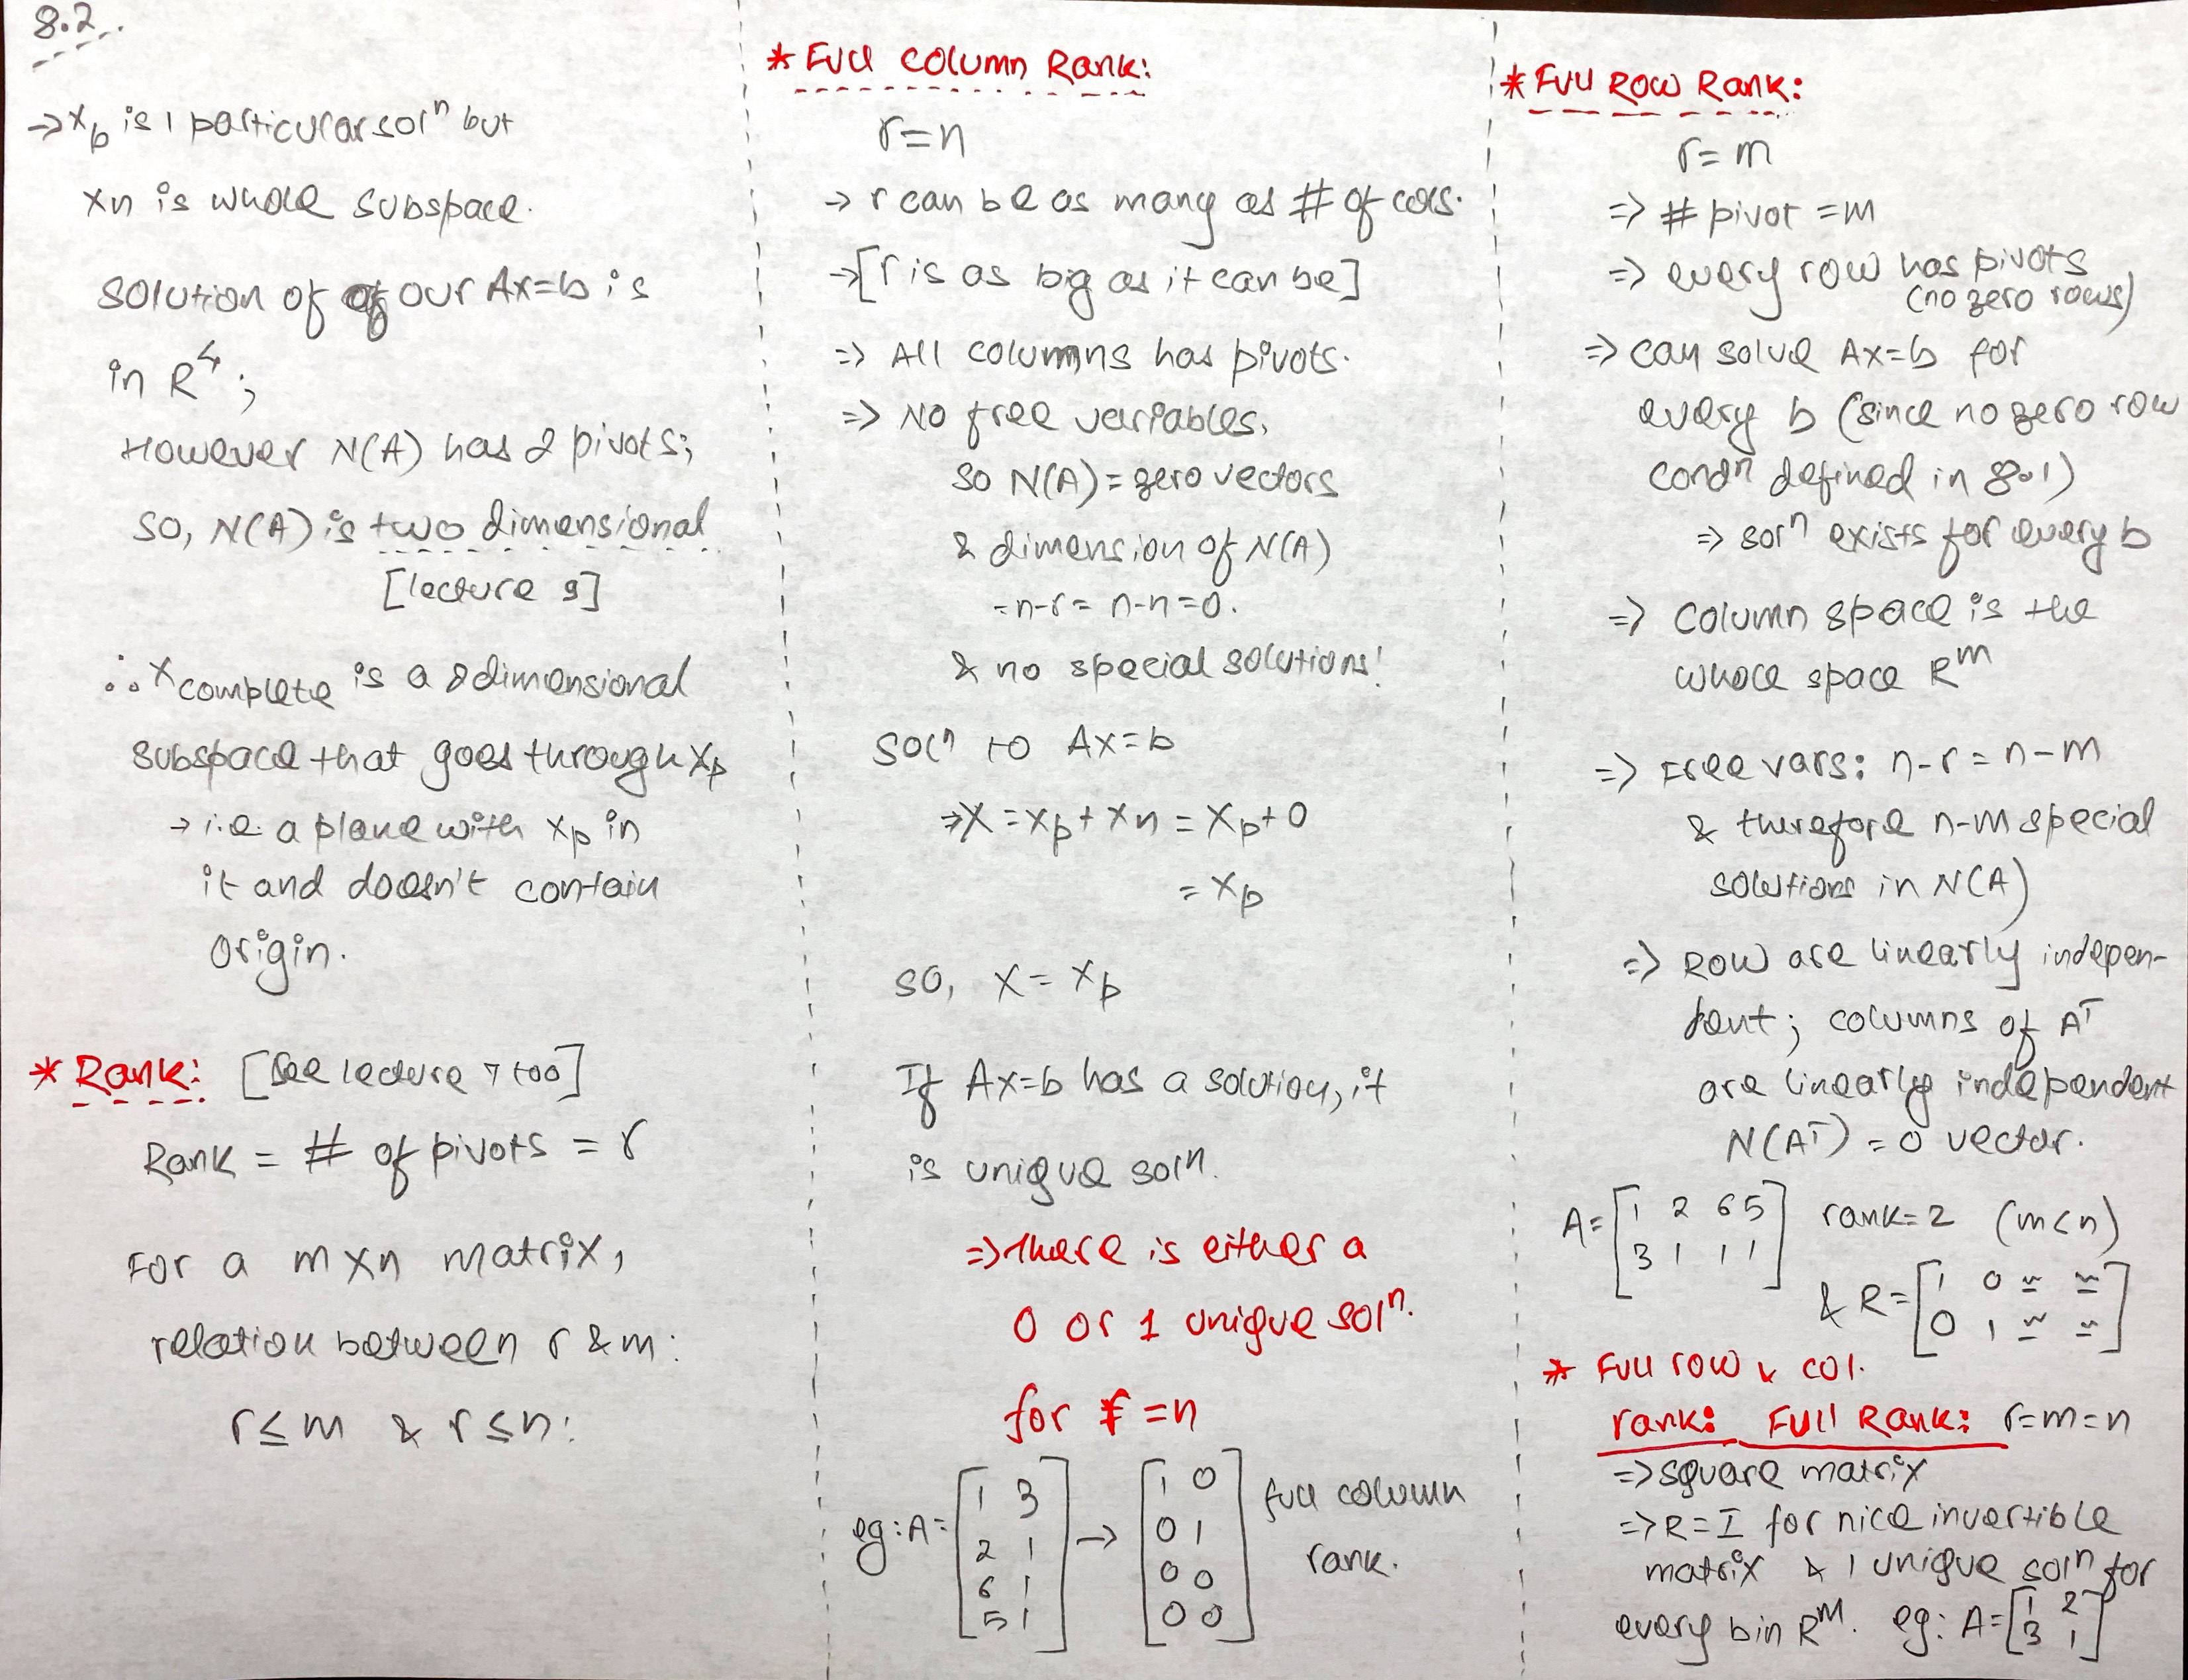 8.2
→ xp is 1 particular solⁿ but
xn is whole subspace.
Solution of of our Ax=b is
in R⁴;
However N(A) has 2 pivots;
So, N(A) is two dimensional
[lecture 9]
∴ x complete is a 2dimensional
subspace that goes through xp
→ i.e. a plane with xp in
it and doesn't contain
origin.
* Rank: [See lecture 7 too]
Rank = # of pivots = r
For a m×n matrix,
relation between r & m:
r≤m & r≤n:
* Full Column Rank:
r=n
→ r can be as many as # of cols.
→[r is as big as it can be]
⇒ All columns has pivots.
⇒ No free variables,
so N(A) = zero vectors
& dimension of N(A)
= n-r = n-n=0.
& no special solutions!
Solⁿ to Ax=b
⇒X = xp + xn = xp+0
= xp
so, x = xp
If Ax=b has a solution, it
is unique solⁿ.
⇒There is either a
0 or 1 unique solⁿ.
for r =n
eg: A= [1 3
2 1
6 1
5 1] → [1 0
0 1
0 0
0 0] full column
rank.
* Full Row Rank:
r=m
⇒ # pivot =m
⇒ every row has pivots
(no zero rows)
⇒ can solve Ax=b for
every b (since no zero row
condⁿ defined in 8.1)
⇒ solⁿ exists for every b
⇒ column space is the
whole space Rᵐ
⇒ Free vars: n-r = n-m
& therefore n-m special
solutions in N(A)
⇒ Row are linearly indepen-
dent; columns of Aᵀ
are linearly independent
N(Aᵀ) = 0 vector.
A= [1 2 6 5
3 1 1 1] rank=2 (m<n)
& R= [1 0 ~ ~
0 1 ~ ~]
* Full row & col.
rank: Full Rank: r=m=n
⇒square matrix
⇒R=I for nice invertible
matrix & 1 unique solⁿ for
every b in Rᵐ. eg: A= [1 2
3 1]